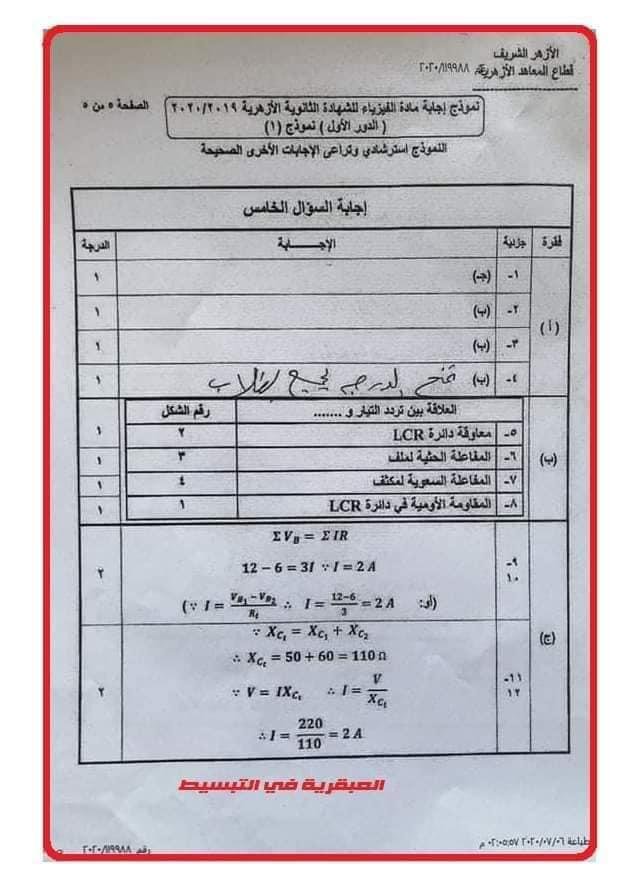 الأزهر الشريف
قطاع المعاهد الأزهرية ٢٠٢٠/١١٩٩٨٨
نموذج إجابة مادة الفيزياء للشهادة الثانوية الأزهرية ٢٠٢٠/٢٠١٩
الصفحة ٥ من ٥
( الدور الأول ) نموذج (١)
النموذج استرشادي وتراعى الإجابات الأخرى الصحيحة
إجابة السؤال الخامس
فقرة جزئية الإجـــــابة الدرجة
(أ)
١- (جـ) ١
٢- (ب) ١
٣- (ب) ١
٤- (ب) تمنح الدرجة لجميع الطلاب ١
(ب)
العلاقة بين تردد التيار و ....... رقم الشكل
٥- معاوقة دائرة LCR ٢ ١
٦- المفاعلة الحثية لملف ٣ ١
٧- المفاعلة السعوية لمكثف ٤ ١
٨- المقاومة الأومية في دائرة LCR ١ ١
(ج)
٩-
١٠
Σ V_B = Σ IR
12 − 6 = 3I ∵ I = 2 A
(أو: (∵ I = (V_B1 − V_B2)/R_t ∴ I = (12−6)/3 = 2 A
٢
١١-
١٢
∵ X_Ct = X_C1 + X_C2
∴ X_Ct = 50 + 60 = 110 Ω
∵ V = IX_Ct ∴ I = V/X_Ct
∴ I = 220/110 = 2 A
٢
العبقرية في التبسيط
طباعة ٢٠٢٠/٠٧/٠٦ ٠٢:٠٥:٥٧ م
رقم ٢٠٢٠/١١٩٩٨٨